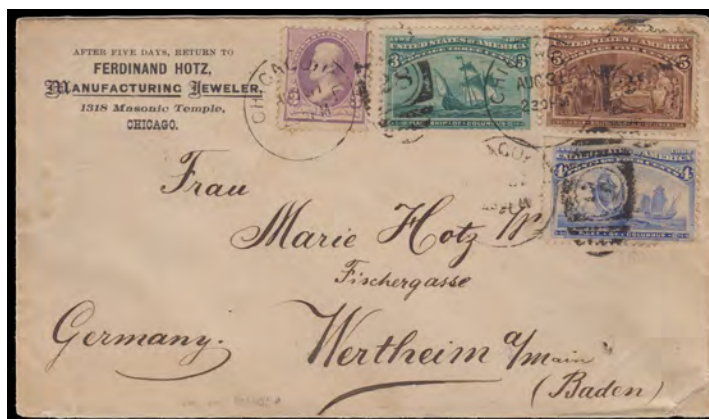 AFTER FIVE DAYS, RETURN TO
FERDINAND HOTZ,
MANUFACTURING JEWELER,
1318 Masonic Temple,
CHICAGO.
CHICAGO
1492 1892
UNITED STATES OF AMERICA
3 3
1492 1892
UNITED STATES OF AMERICA
5 5
AUG 31
UNITED STATES OF AMERICA
4 4
Frau
Marie Hotz
Fischergasse
Germany.
Wertheim a/Main
(Baden)